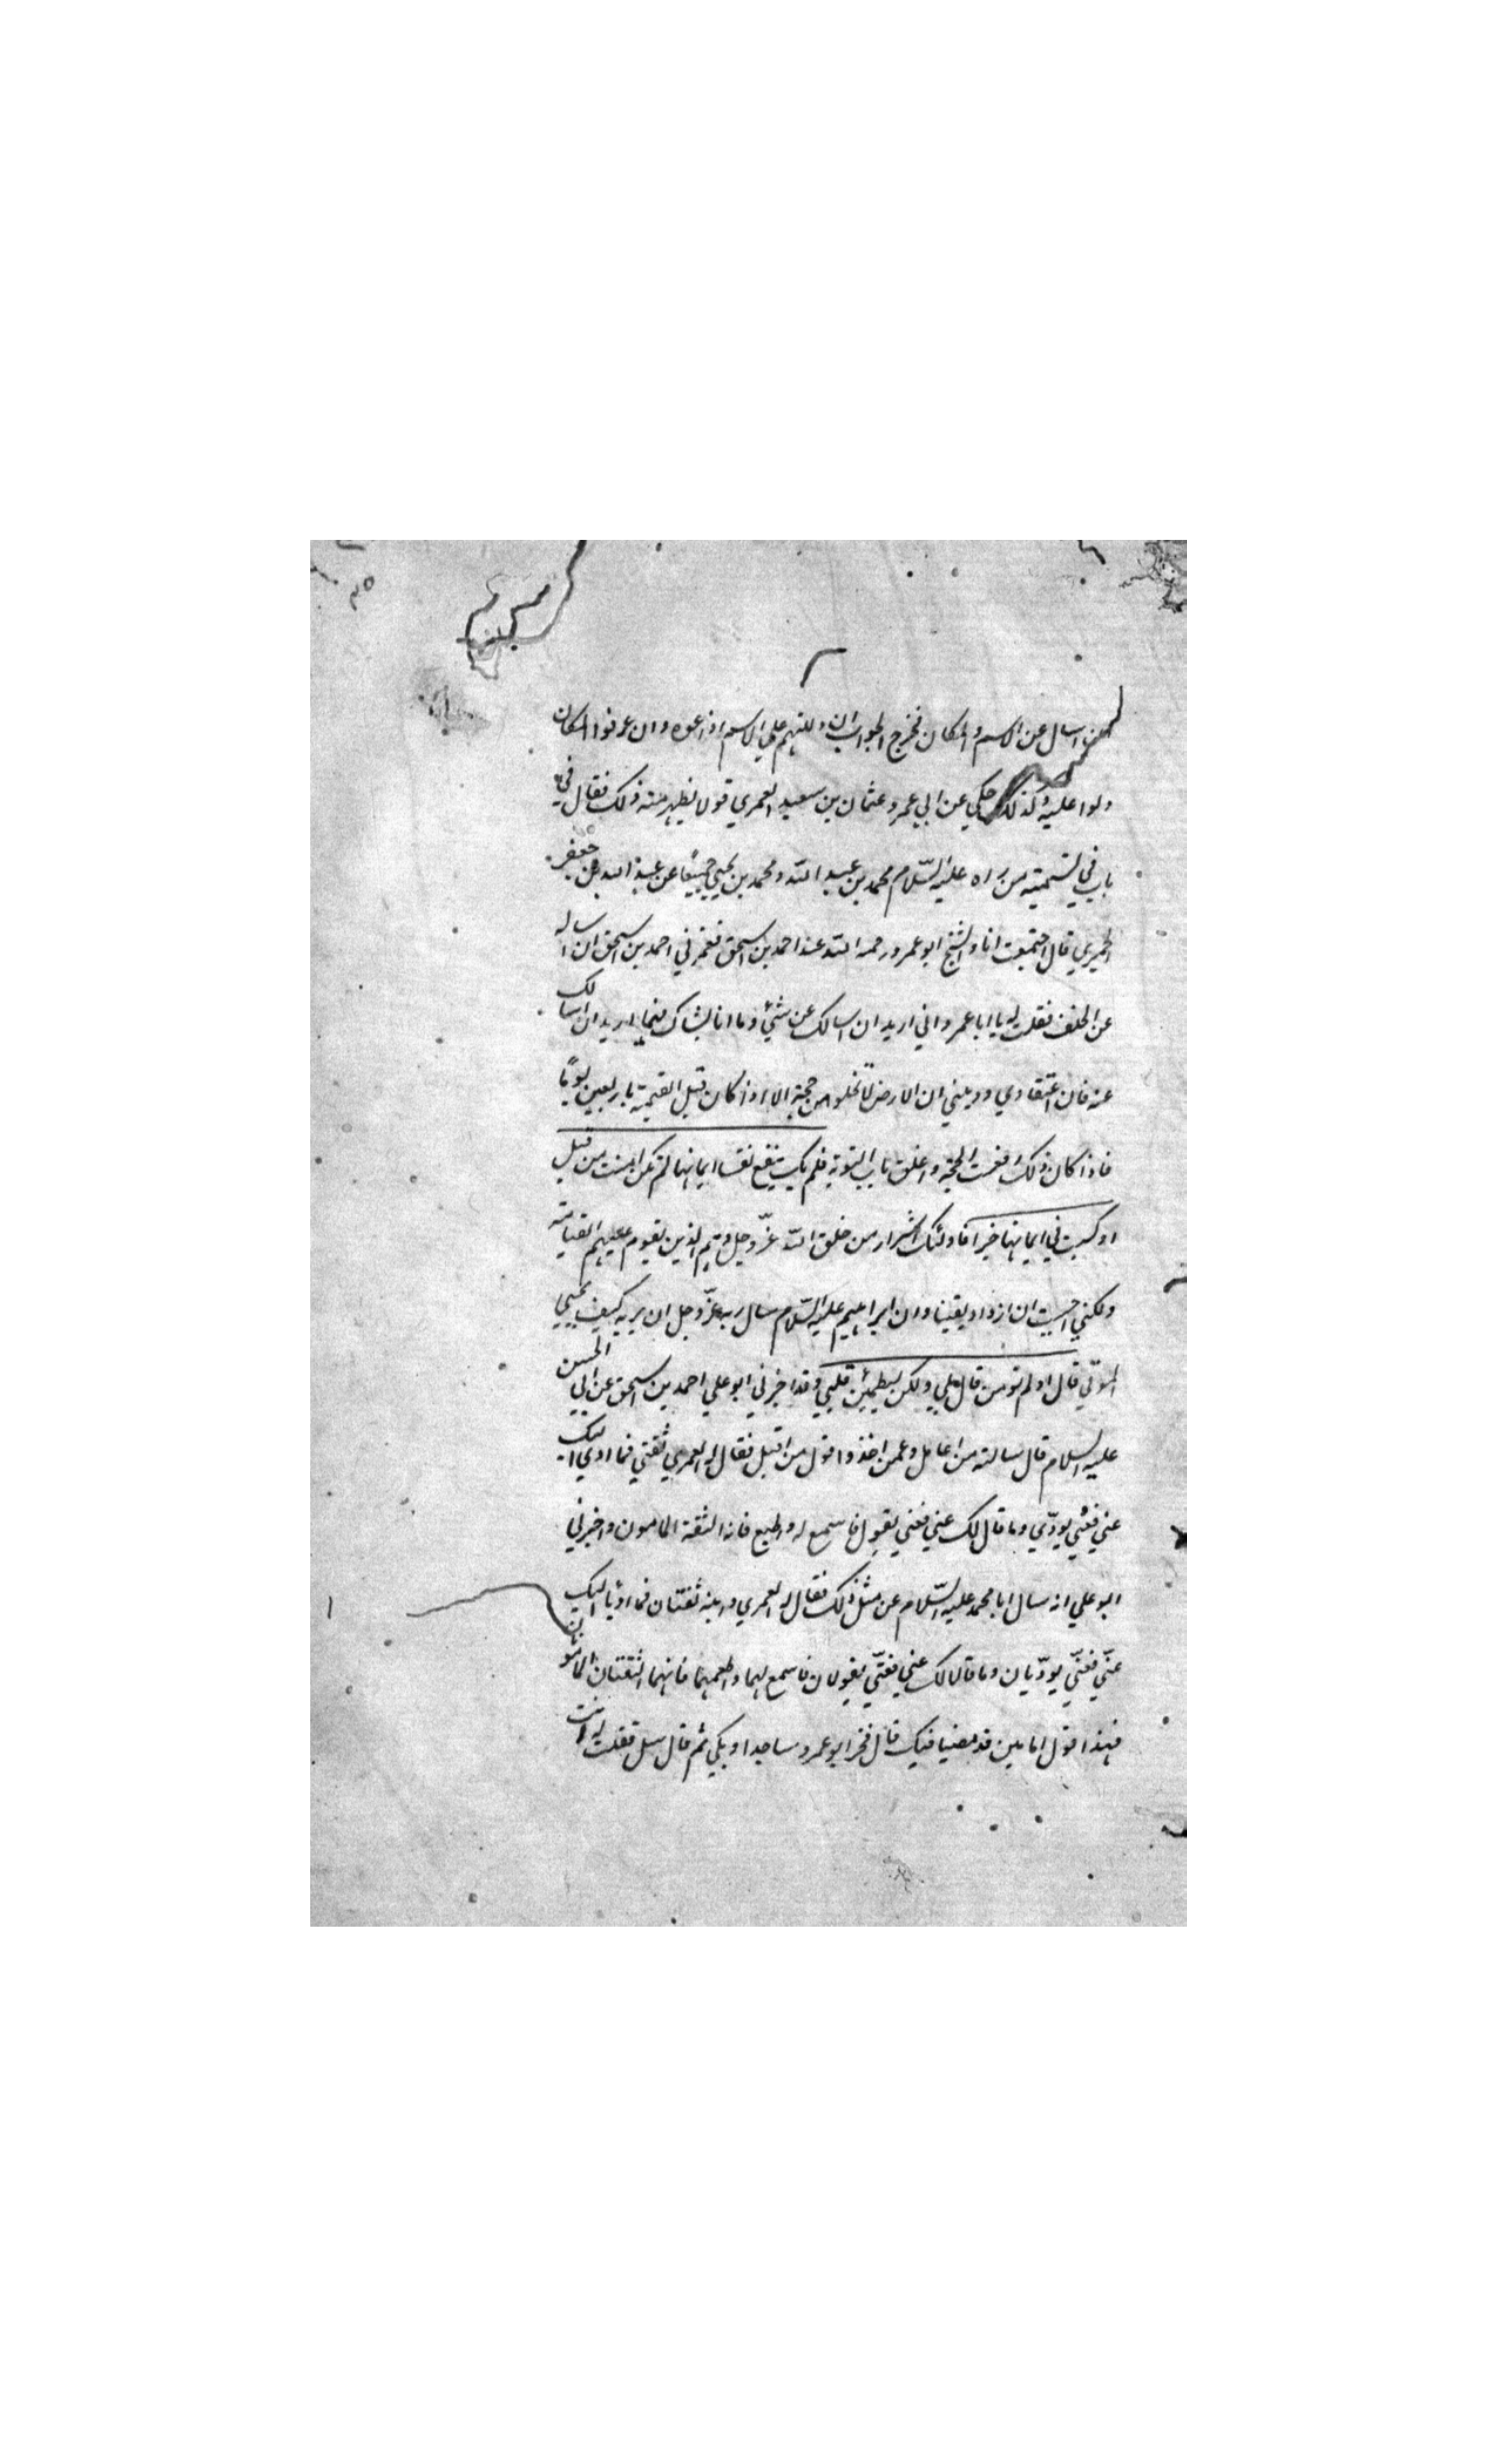 اسال عن الاسم والمكان فخرج الجواب ان دللتهم علي الاسم اذاعوه وان عرفوا المكان
دلوا عليه وكذلك حكي عن ابي عمرو عثمان بن سعيد العمري قولا يظهر منه ذلك فقال في
باب في تسمية من راه عليه السلام محمد بن عبد الله ومحمد بن يحيي جميعا عن عبد الله بن جعفر
الحميري قال اجتمعت انا والشيخ ابو عمرو رحمه الله عند احمد بن اسحق فغمزني احمد بن اسحق ان اساله
عن الخلف فقلت له يا ابا عمرو اني اريد ان اسالك عن شئ وما انا بشاك فيما اريد ان اسالك
عنه فان اعتقادي وديني ان الارض لا تخلو من حجة الا اذا كان قبل القيمة باربعين يوما
فاذا كان ذلك رفعت الحجة واغلق باب التوبة فلم يك ينفع نفسا ايمانها لم تكن امنت من قبل
او كسبت في ايمانها خيرا فاولئك اشرار من خلق الله عز وجل وهم الذين يقوم عليهم القيامة
ولكني احببت ان ازداد يقينا وان ابراهيم عليه السلام سال ربه عز وجل ان يريه كيف يحيي
الموتي قال او لم تومن قال بلي ولكن ليطمئن قلبي وقد اخبرني ابو علي احمد بن اسحق عن ابي الحسن
عليه السلام قال سالته من اعامل وعمن اخذ وقول من اقبل فقال له العمري ثقتي فما ادي اليك
عني فعني يودي وما قال لك عني فعني يقول فاسمع له واطع فانه الثقة المامون واخبرني
ابو علي انه سال ابا محمد عليه السلام عن مثل ذلك فقال له العمري وابنه ثقتان فما اديا اليك
عني فعني يوديان وما قالا لك عني فعني يقولان فاسمع لهما واطعهما فانهما الثقتان المامونان
فهذا قول امامين قد مضيا فيك قال فخر ابو عمرو ساجدا وبكي ثم قال سل فقلت له انت